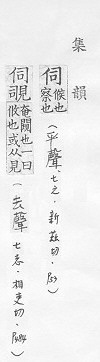 集韻
伺 候也察也 (平聲,七之,新茲切,
伺覗 也一曰候也或从見 (去聲 七志,相吏切,